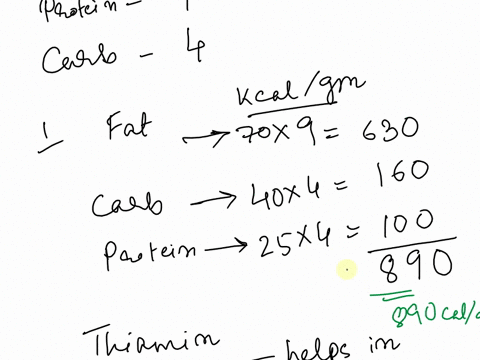 Protein -
Carb - 4
Kcal/gm
1 Fat → 70×9 = 630
Carb → 40×4 = 160
Protein → 25×4 = 100
890
890 cal/
Thiamin - helps in